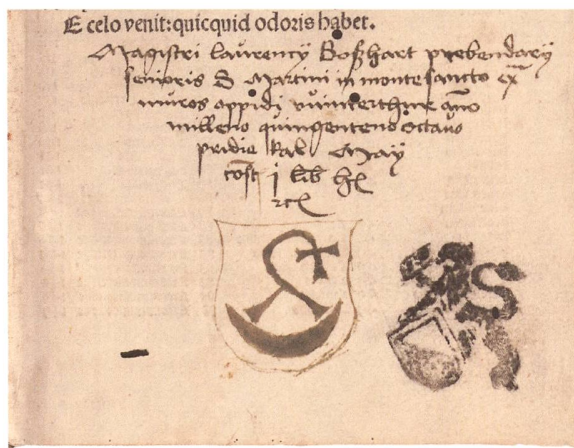 E celo venit: quicquid odoris habet.
Magistri laurencij Boßhart prebendarij
senioris S Martini in monte sancto ex̄
muros oppidj vuinterthur año
milleno quingenteno octauo
pridie kal May
cost j lib hl